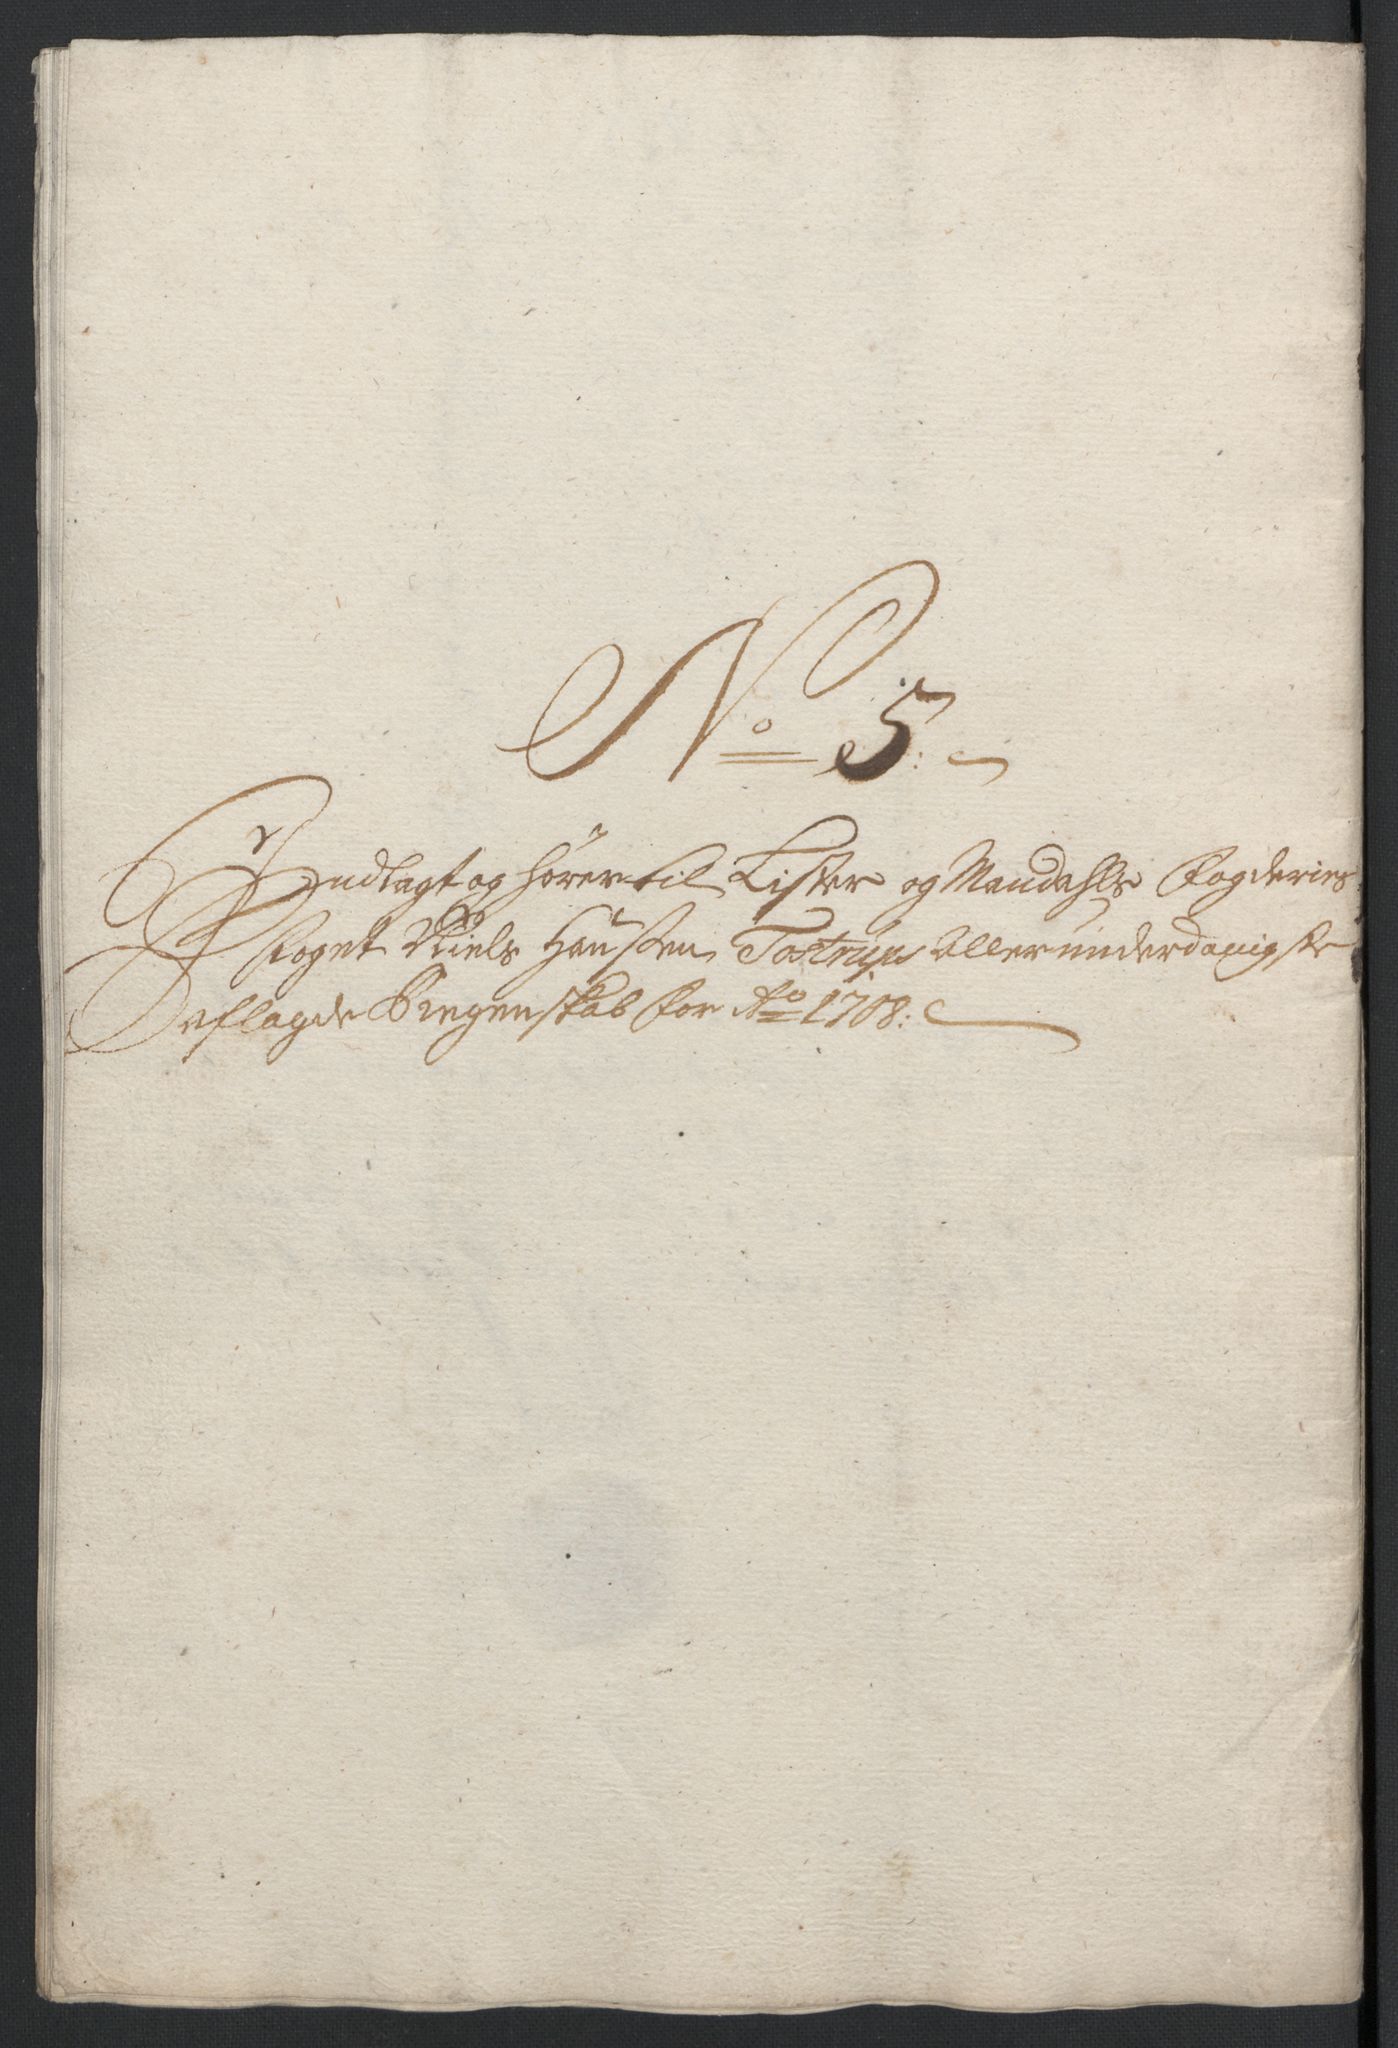 No 5:
Indlagt og hører til Lister og Mandahls Fogderies
Foget Niels Hansen Tostrups Allerunderdanigste
aflagde Regenskab for Ao 1708: